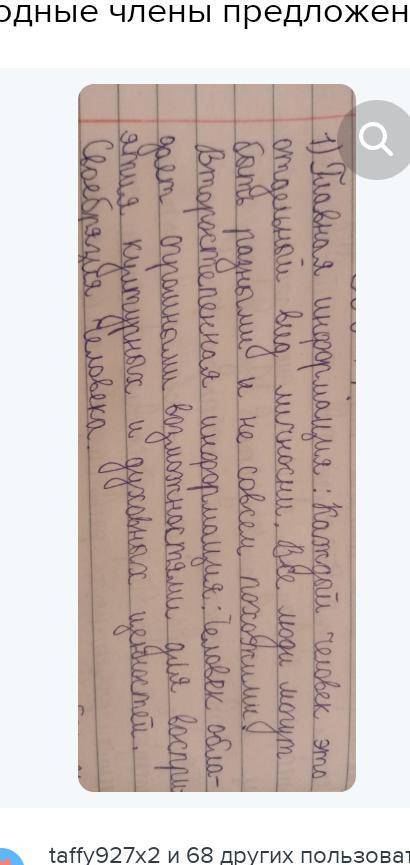 одные члены предложен
1) Главная информация: Каждой человек это
отдельной вид личности. Все люди могут
быть разными и не совсем похожими!
Второстепенная информация: Человек обла-
дает огромными возможностями для воспри
ятия культурных и духовных ценностей.
Своебразия Человека.
taffy927x2 и 68 других пользоват